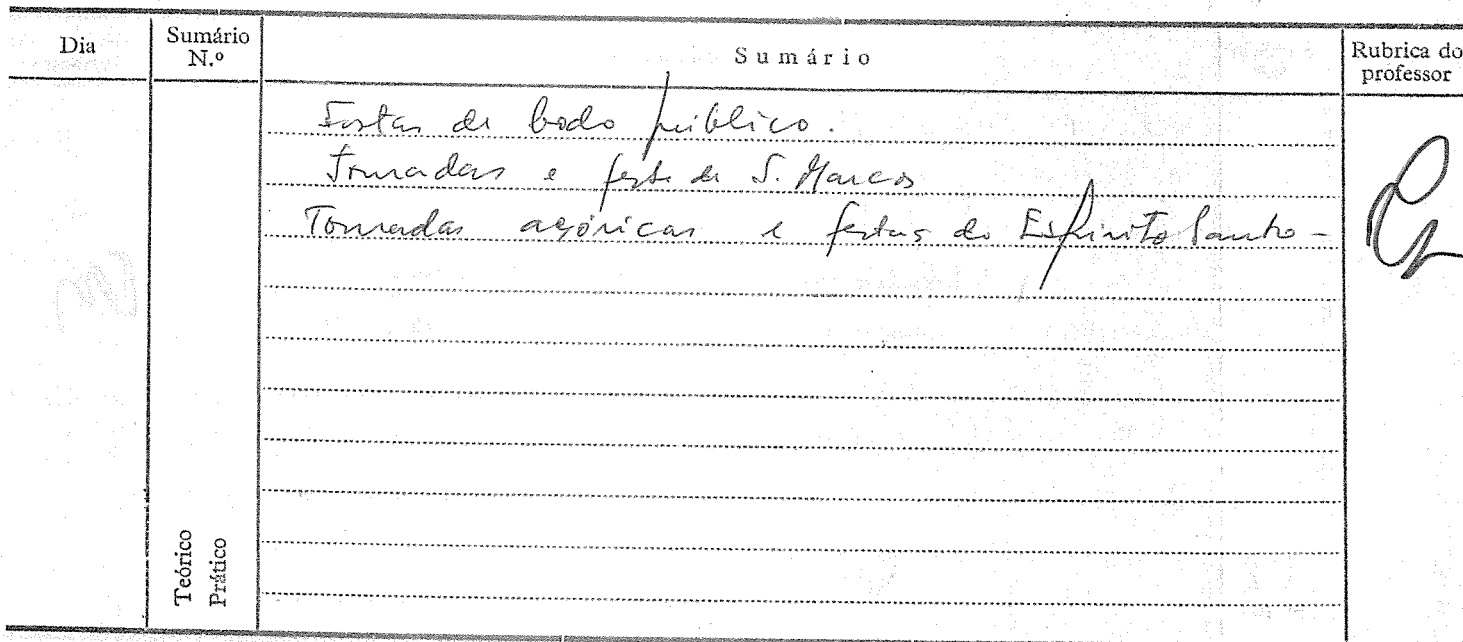 Dia
Sumário N.º
Sumário
Rubrica do professor
Festas de bodo público.
Touradas e festa de S. Marcos
Touradas açóricas e festas do Espírito Santo -
Teórico
Prático